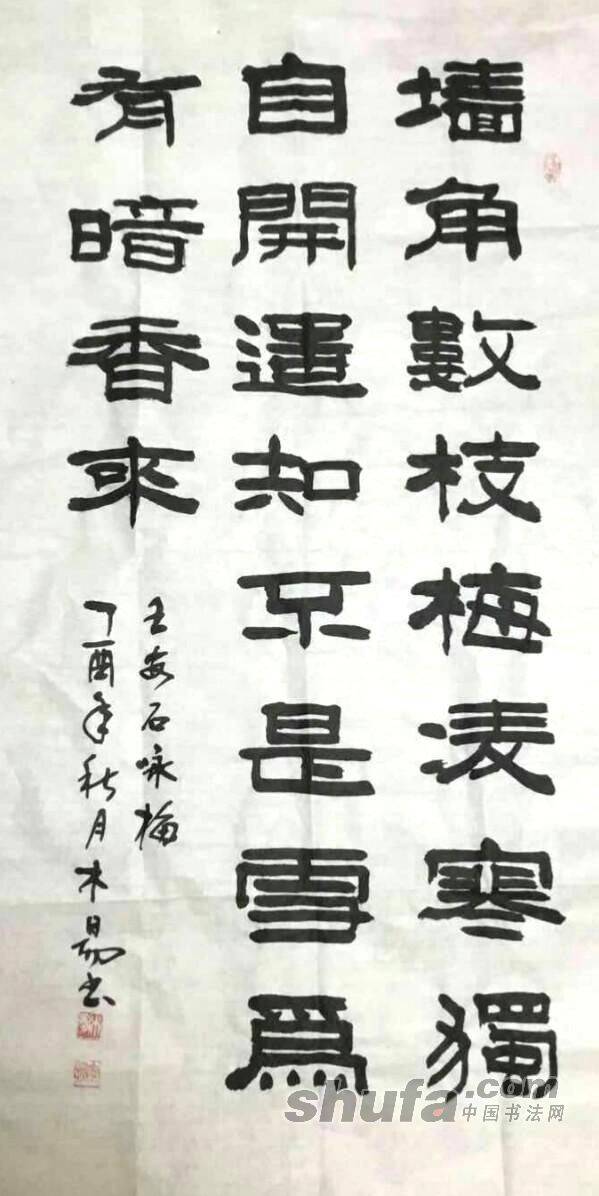 墙角數枝梅凌寒獨
自開遣知不是雪爲
有暗香來
王安石咏梅
丁酉年秋月木易书
shufa.com
中国书法网